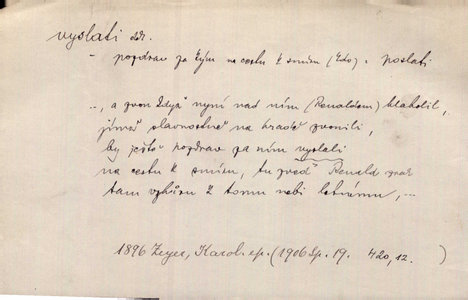 vyslati dok.
– pozdrav za kým na cestu k smíru (Zdo) : poslati
„, a zvon když nyní nad ním (Renaldem) blaholil,
jímž slavnostně na hradě zvonili,
by ještě pozdrav za ním vyslali
na cestu k smíru, tu zved' Renald zrak
tam vzhůru k tomu nebi letnímu, „–
1896 Zeyer, Karol. ep. (1906 Sp. 19. 420,12.)